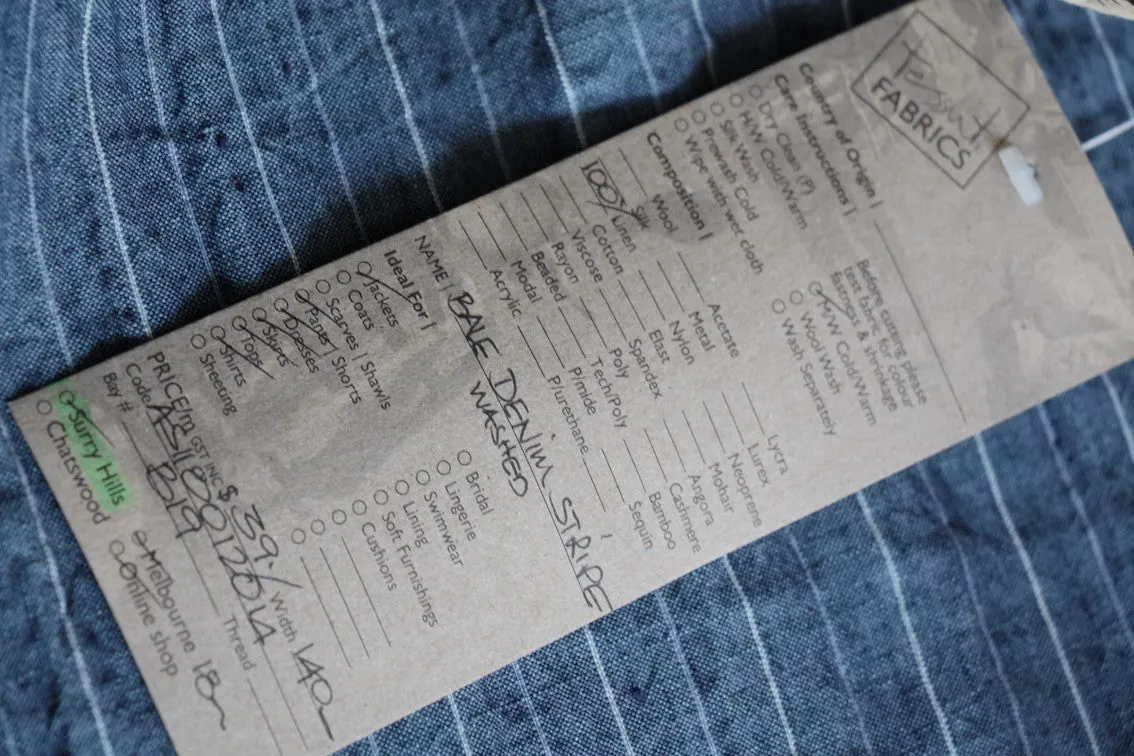 Tessuti
FABRICS
Country of Origin |
Care Instructions |
Dry Clean (P)
H/W Cold/Warm
Silk Wash
Prewash Cold
Wipe with wet cloth
Before cutting please
test fabric for colour
fastness & shrinkage
M/W Cold/Warm
Wool Wash
Wash Separately
Composition |
Wool
Silk
100% Linen
Cotton
Viscose
Rayon
Beaded
Modal
Acrylic
Acetate
Metal
Nylon
Elast
Spandex
Poly
Tech/Poly
P/mide
P/urethane
Lycra
Lurex
Neoprene
Mohair
Angora
Cashmere
Bamboo
Sequin
NAME | BALE DENIM STRIPE
WASHED
Ideal For |
Jackets
Coats
Scarves | Shawls
Pants | Shorts
Dresses
Skirts
Tops
Shirts
Sheeting
Bridal
Lingerie
Swimwear
Lining
Soft Furnishings
Cushions
PRICE/m GST INC $39.- Width 140
Code Thread
Bay # B19
Surry Hills Melbourne 18
Chatswood Online shop